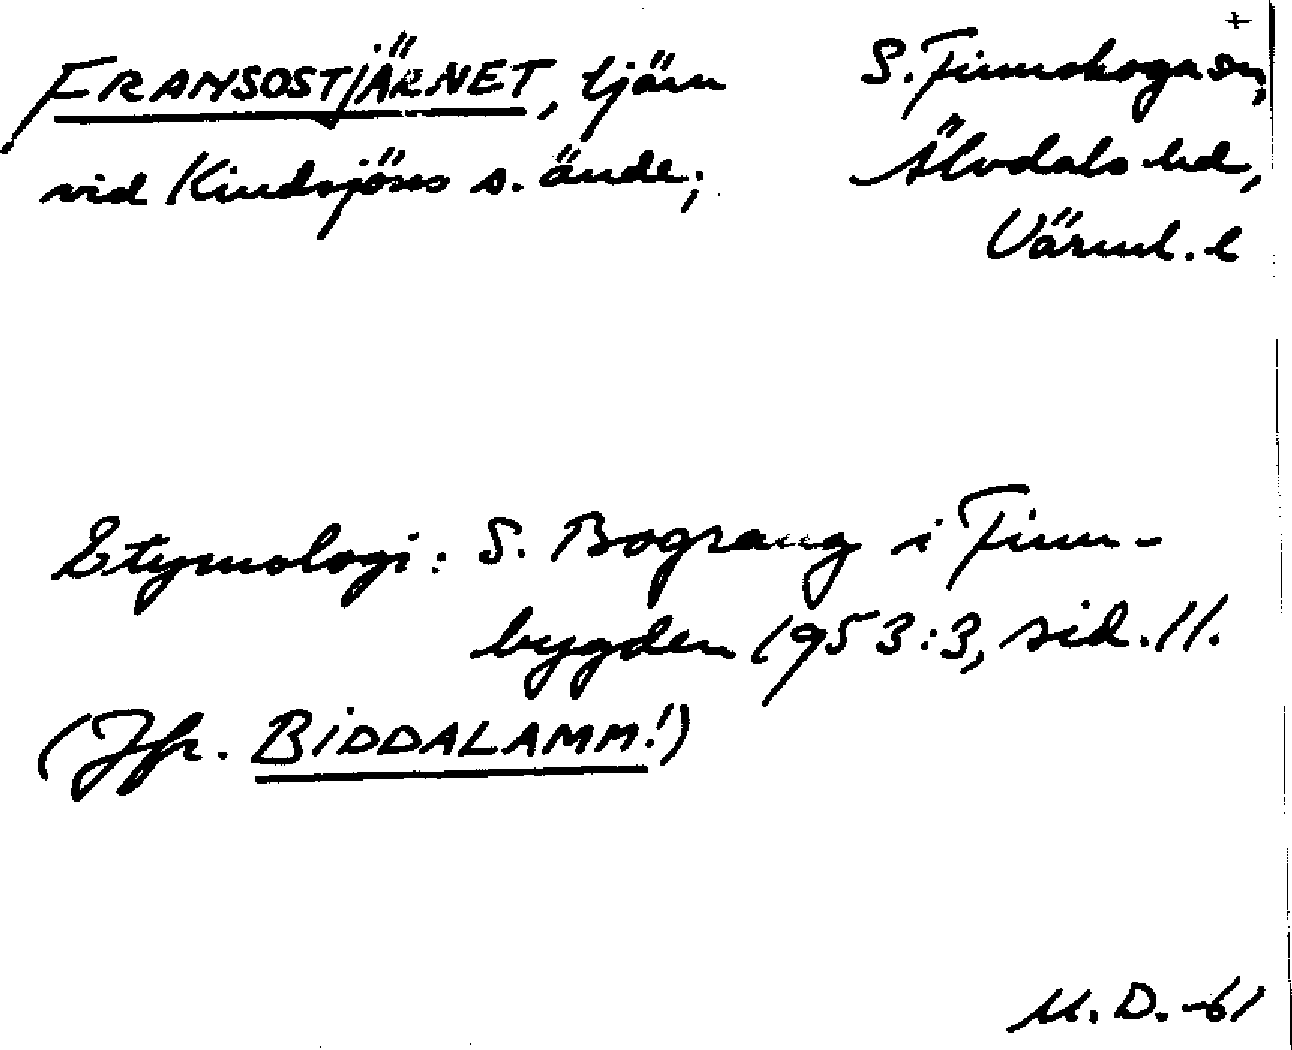 FRANSOSTJÄRNET, tjärn
vid Kindsjöns s. ände;
S. Finnskoga sn,
Älvdals hd,
Värml. l
Etymologi: S. Bograng i Finn-
bygden 1953:3, sid. 11.
(Jfr. BIDDALAMM!)
M. D. -61